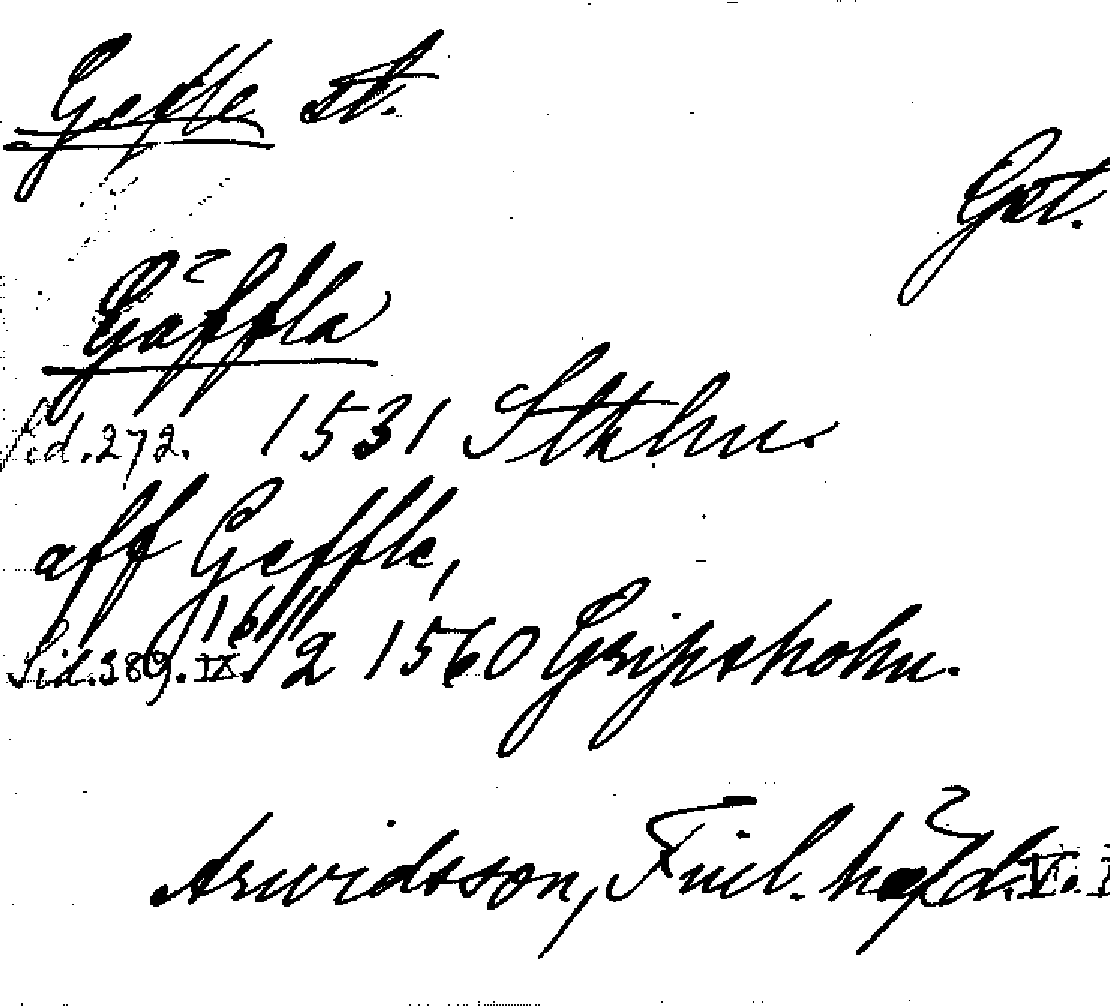 Gefle st.
Gst.
Gäffla
Sid. 272. 1531 Sthlm.
aff Geffle,
Sid. 389. IX. 16/12 1560 Gripsholm.
Arwidsson, Finl. häfd. V.